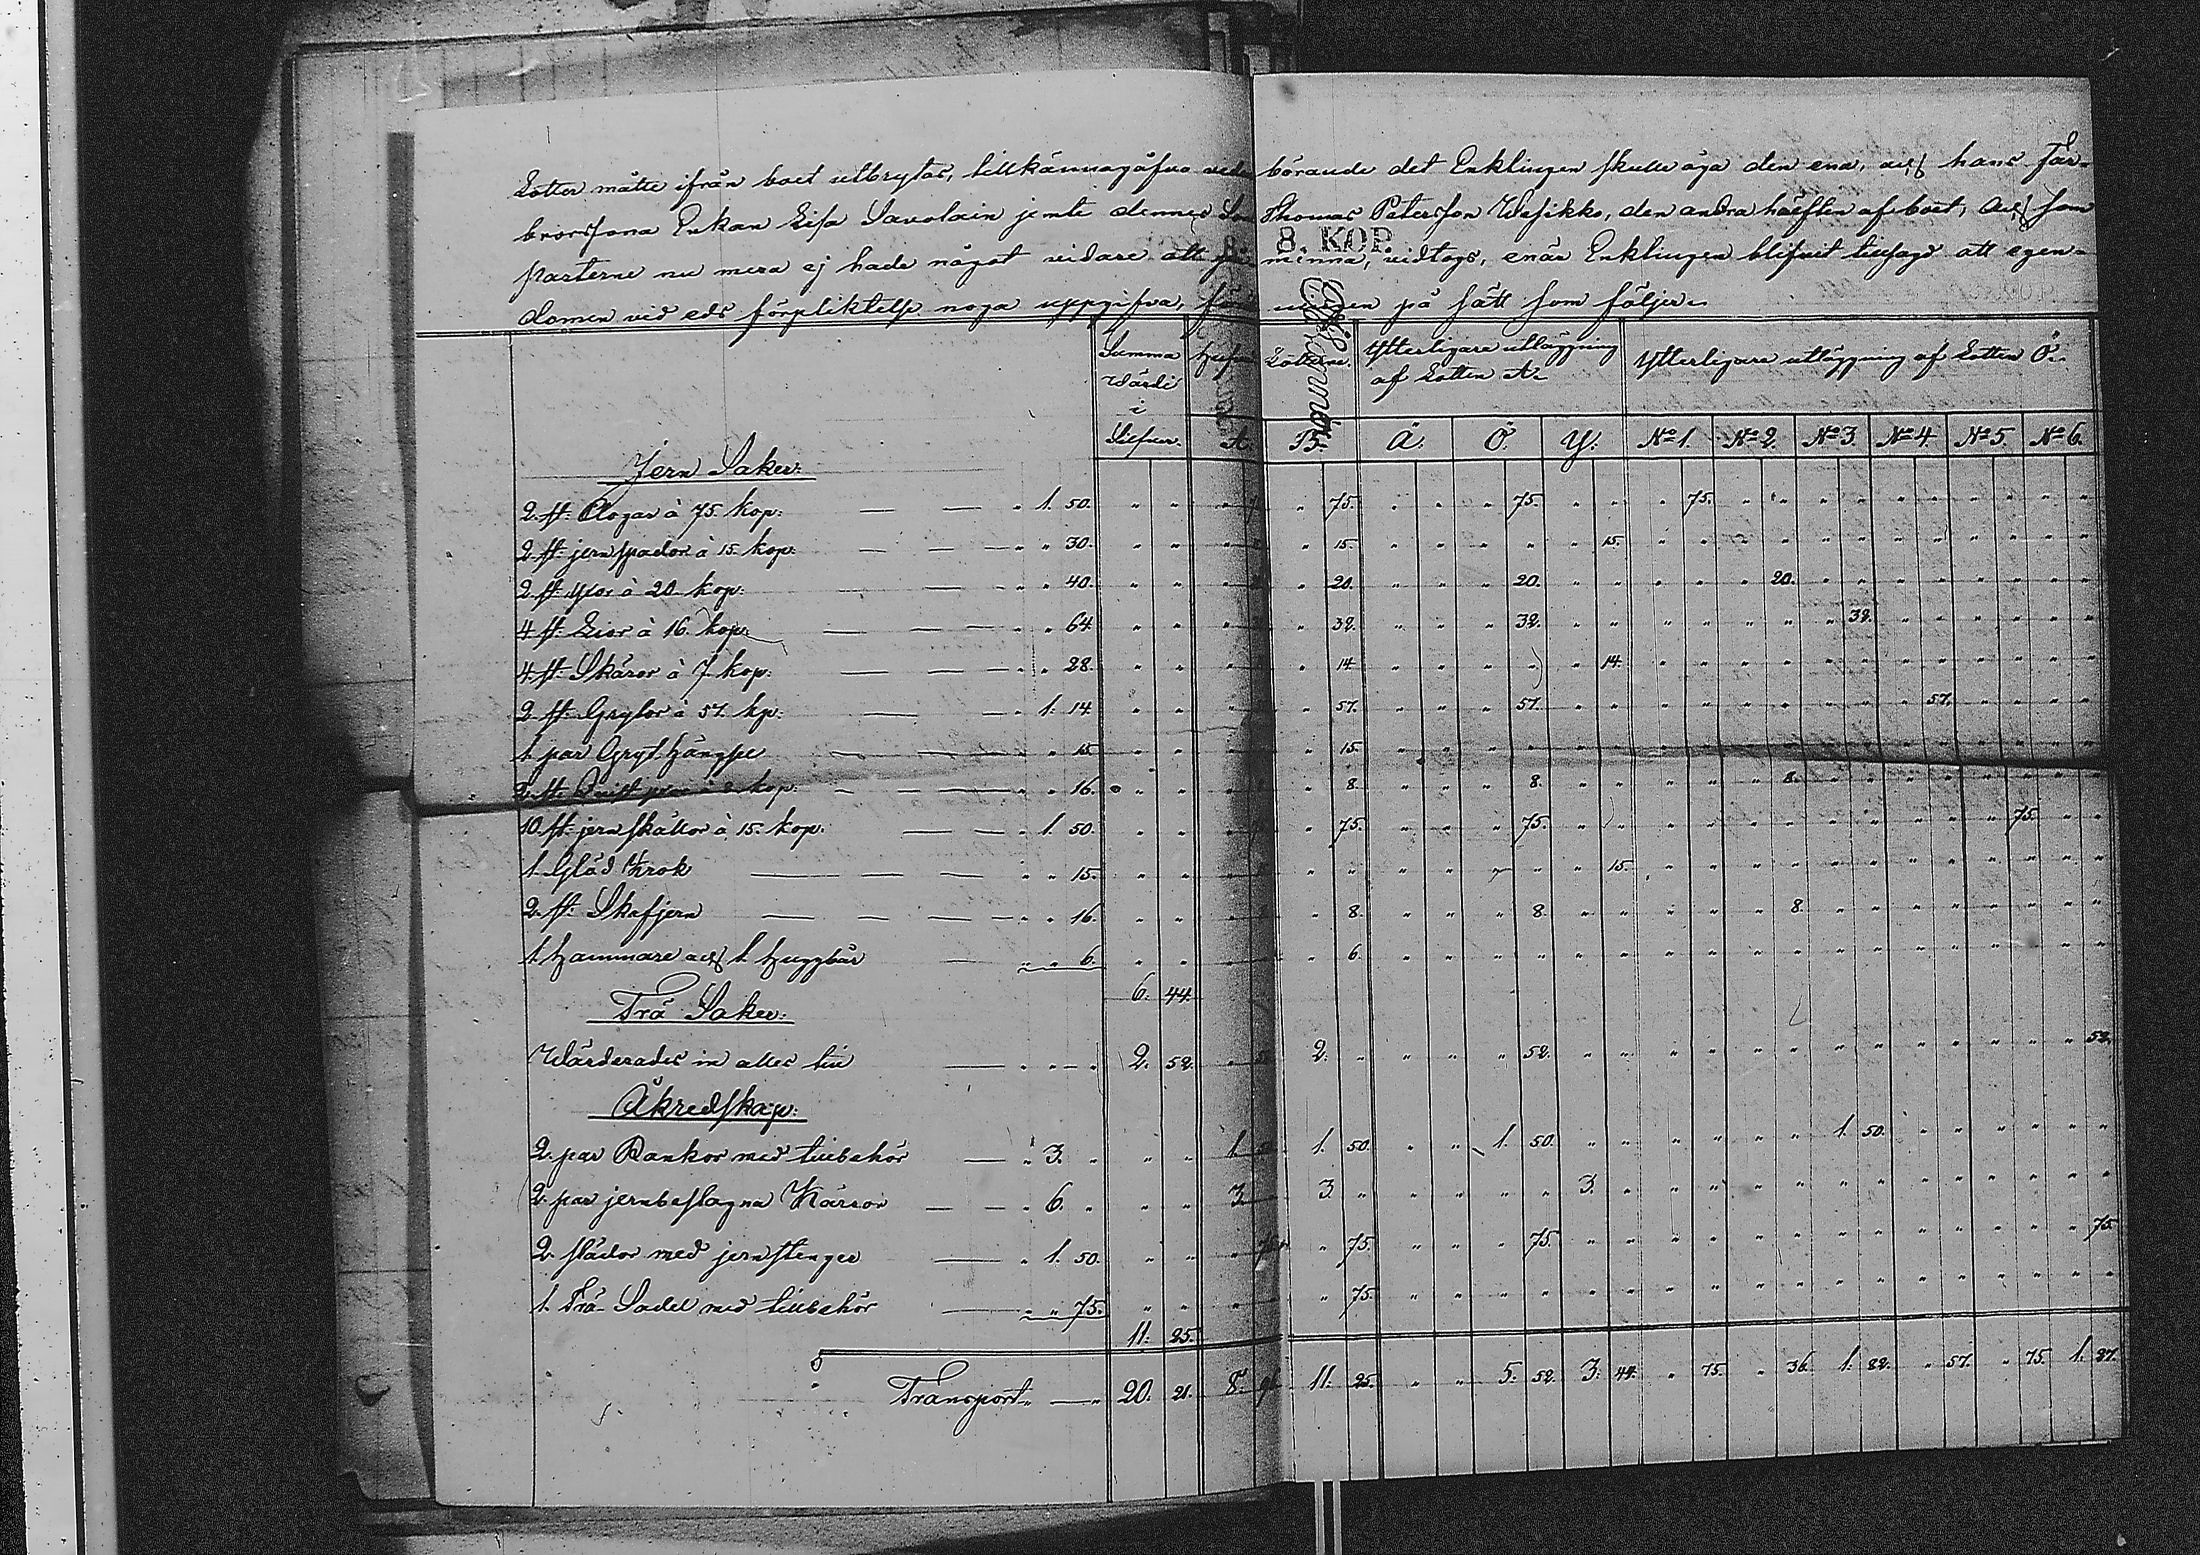 Lotter måtte ifrån boet utbrytas, tillkännagåfvo veder börande det Enklingen skulle äga den ena, och hans Far-
brorssona Enkan Lisa Savolain jemte dennes Son Thomas Petersson Wesikko, den andra hälften af boet; Och som
8. KOP.
parterne nu mera ej hade något vidare att på minna, vidtogs, enär Enklingen blifvit tillsagd att egen-
domen vid eds förpliktelse noga uppgifva, på sätt som följer.
Summa Wärde i Silfver. Lotterne. Ytterligare utläggning af Lotten A. Ytterligare utläggning af Lotten Ö.
A B. Ä. Ö. Y. No 1. No 2. No 3. No 4. No 5. No 6.
Jern Saker:
2. st: Plogar à 75. kop: — — " 1. 50. 75. 75. 75.
2 st: jernspador à 15. kop: — — — " " 30. 15. 15.
2. st: Yxor à 20. kop: — — — " " 40. 20. 20. 20.
4 st: Liar à 16. kop: — — — " " 64. 32. 32. 32.
4. st: Skäror à 7. kop: — — — " " 28. 14. 14.
2 st: Grytor à 57. kp: — — " 1. 14. 57. 57. 57.
1. par Gryt hängsle — — — " " 15. 15.
2. st: à 8 kop: — — — " " 16. 8. 8. 8.
10. st: jernskållor à 15. kop: — — " 1. 50. 75. 75. 75.
1. Glöd Krok — — — — " " 15. 15.
2. st: Skafjern — — — — " " 16. 8. 8. 8.
1. Hammare och 1. — " " 6. 6.
6. 44.
Trä Saker:
Wärderades in alles till — " " " 2. 52. 2. " 52. 52.
Åkredskap:
2. par Rankor med tillbehör — " 3. " 1. 1. 50. 1. 50. 1. 50.
2. par jernbeslagna Kärror — — " 6. " 3. 3. " 3. "
2. slädor med jernstenger — " 1. 50. 75. 75. 75.
1. Trä Sadel med tillbehör — " " 75. 75.
11. 25.
Transport " — " 20. 21. 8. 11. 25. 5. 52. 3. 44. " 75. " 36. 1. 82. " 57. " 75. 1. 27.